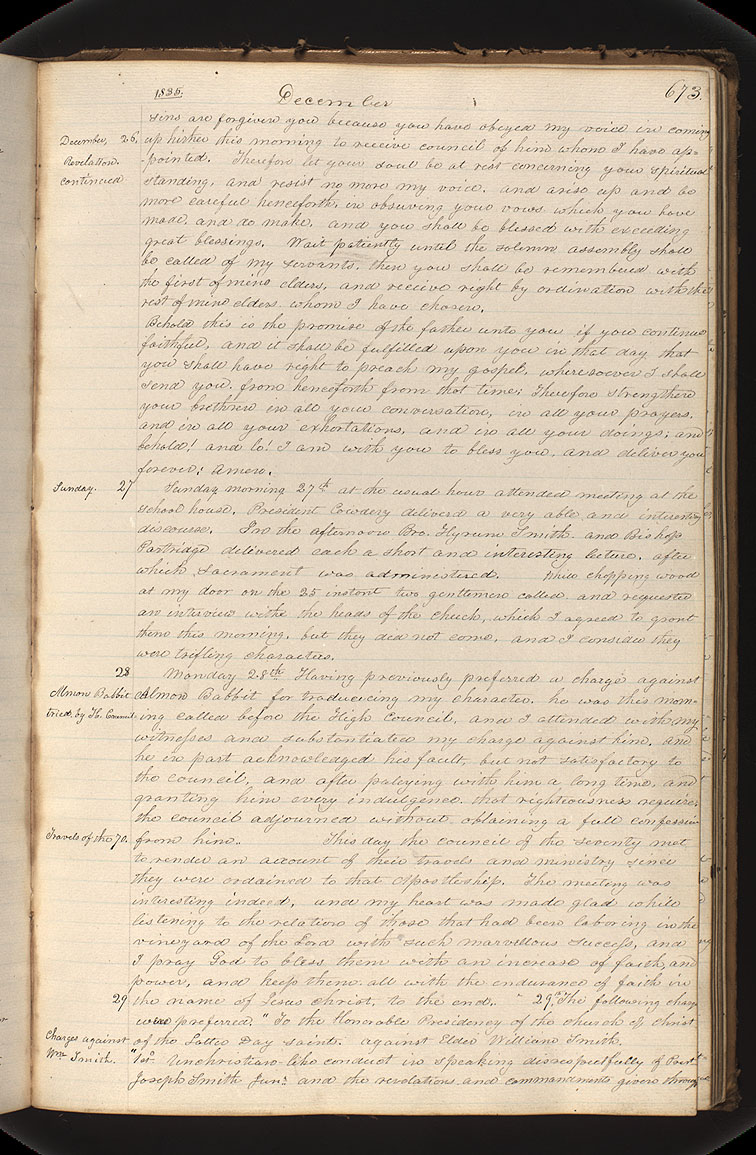 1835. December 673.
sins are forgiven you because you have obeyed my voice in coming
December, 26, up hither this morning to receive council of him whom I have ap-
Revelation. -pointed. Therefore let your soul be at rest concerning your spiritual
continued standing, and resist no more my voice. and arise up and be
more careful henceforth, in observing your vows which you have
made, and do make, and you shall be blessed with exceeding
great blessings. Wait patiently until the solemn assembly shall
be called of my servants, then you shall be remembered with
the first of mine elders, and receive right by ordination with the
rest of mine elders whom I have chosen.
Behold this is the promise of the father unto you if you continue
faithful, and it shall be fulfilled upon you in that day that
you shall have right to preach my gospel, wheresoever I shall
send you, from henceforth from that time; Therefore strengthen
your brethren in all your conversation, in all your prayers,
and in all your exhortations, and in all your doings; and
behold! and lo! I am with you to bless you, and deliver you
forever; amen.
Sunday. 27 Sunday morning 27th at the usual hour attended meeting at the
School house. President Cowdery deliverd a very able and interesting
discourse. In the afternoon Bro. Hyrum Smith and Bishop
Partridge delivered each a short and interesting lecture, after
which Sacrament was administered. While chopping wood
at my door on the 25 instant two gentlemen called and requested
an interview with the heads of the Chuch, which I agreed to grant
them this morning, but they did not come, and I consider they
were trifling characters.
28 Monday 28th Having previously preferred a charge against
Almon Babbit Almon Babbit for traducicing my character, he was this morn-
tried by H. Council. ing called before the High Council, and I attended with my
witnesses and substantiated my charge against him, and
he in part acknowledged his fault, but not satisfactory to
the council, and after parleying with him a long time, and
granting him every indulgence, that righteousness requires
the council adjourned without obtaining a full confession
Travels of the 70. from him. This day the council of the seventy met
to render an account of their travels and ministry since
they were ordained to that Apostleship. The meeting was
interesting indeed, and my heart was made glad while
listening to the relation of those that had been laboring in the
vineyard of the Lord with such marvellous success, and
I pray God to bless them with an increase of faith, and
power, and keep them all with the endurance of faith in
29 the name of Jesus Christ, to the end. 29th The following charges
were preferred. "To the Honorable Presidency of the church of Christ
Charges against of the Latter Day saints. against Elder William Smith.
Wm Smith. "1st Unchristian-like conduct in speaking disrespectfully of Prest
Joseph Smith Junr and the revelations and commandments given through